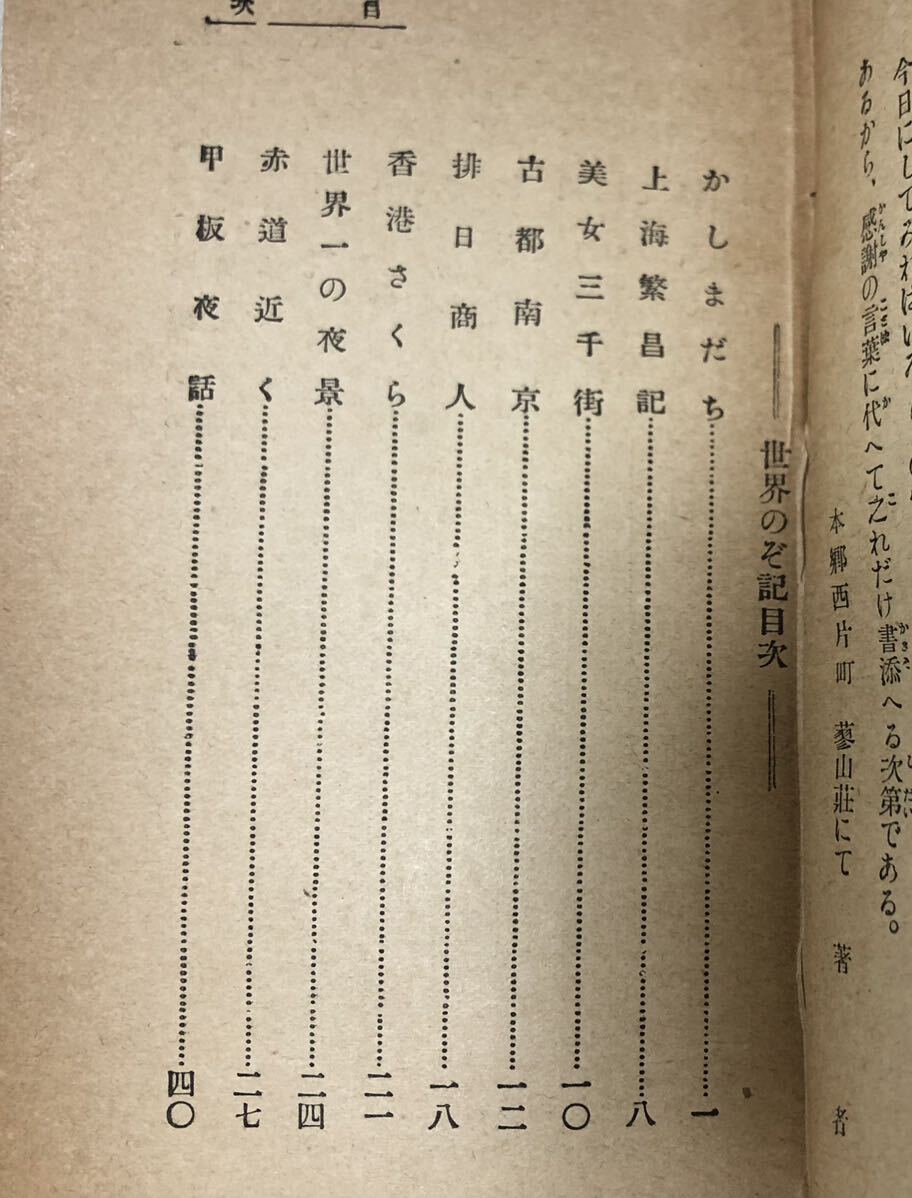 あるから、感謝の言葉に代へて之れだけ書添へる次第である。
本鄕西片町 蓼山莊にて 著者
目次
世界のぞ記目次
かしまだち……一
上海繁昌記……八
美女三千街……一〇
古都南京……一二
排日商人……一八
香港さくら……二一
世界一の夜景……二四
赤道近く……二七
甲板夜話……四〇